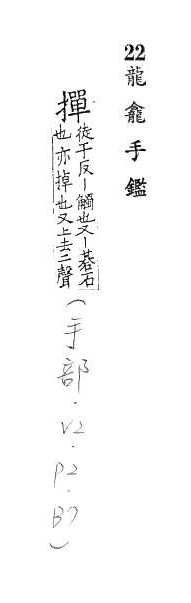 22龍龕手鑑
撣徒干反丨觸也又丨碁石也亦掉也又上去二聲
(手部.V2.P2.B7)